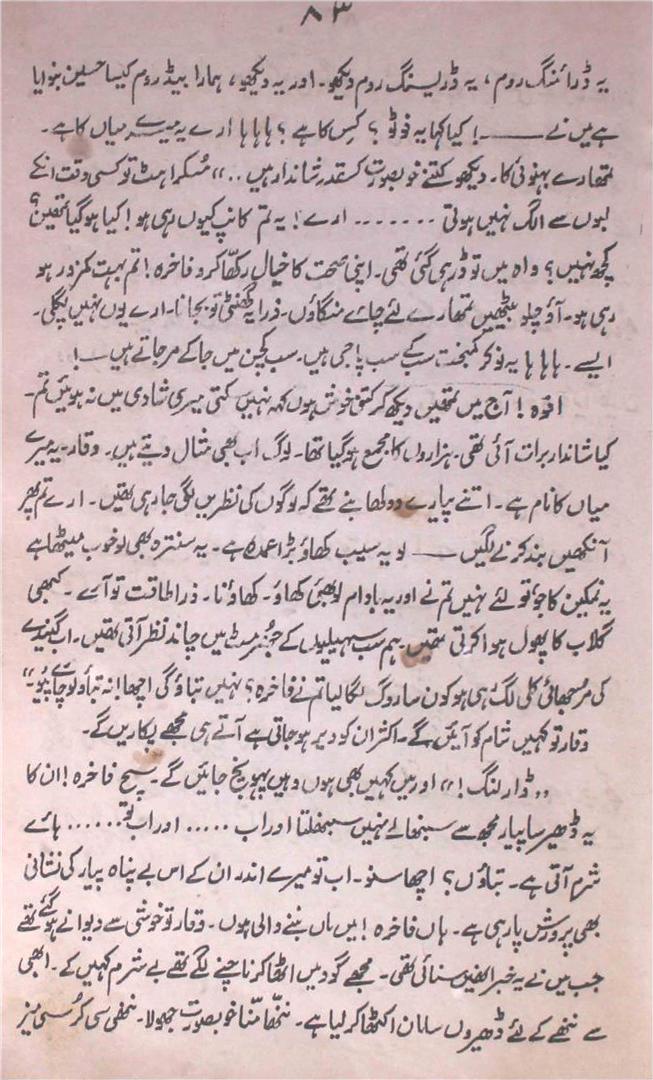 ۸۳
یہ ڈرائنگ روم، یہ ڈریسنگ روم دیکھو۔ اور یہ دیکھو، ہمارا بیڈ روم کیسا حسین بنوایا
ہے میں نے ——! کیا کہا یہ فوٹو؟ کِس کا ہے؟ ہاہاہا ارے یہ میرے میاں کا ہے۔
تمھارے بہنوئی کا۔ دیکھو کتنے خوبصورت کسقدر شاندار ہیں ..“ مُسکراہٹ تو کسی وقت انکے
لبوں سے الگ نہیں ہوتی ....... ارے! یہ تم کانپ کیوں رہی ہو! کیا ہو گیا تمھیں؟
کچھ نہیں؟ واہ میں تو ڈر ہی گئی تھی۔ اپنی صحت کا خیال رکھّا کرو فاخرہ! تم بہت کمزور ہو
رہی ہو۔ آؤ چلو بیٹھیں تمھارے لئے چاۓ منگاؤں۔ ذرا یہ گھنٹی تو بجانا۔ ارے یوں نہیں پگلی۔
ایسے۔ ہاہاہا یہ نوکر کمبخت سب کے سب پاجی ہیں۔ سب کچن میں جا کے مر جاتے ہیں —!
افوہ! آج میں تمھیں دیکھ کر کتنی خوش ہوں کہہ نہیں سکتی میری شادی میں نہ ہوئیں تم۔
کیا شاندار برات آئی تھی۔ ہزاروں کا مجمع ہو گیا تھا۔ لوگ اب بھی مثال دیتے ہیں۔ وقار۔ یہ میرے
میاں کا نام ہے۔ اتنے پیارے دولھا بنے تھے کہ لوگوں کی نظریں لگی جا رہی تھیں۔ ارے تم پھر
آنکھیں بند کرنے لگیں —— لو یہ سیب کھاؤ بڑا عمدہ ہے۔ یہ سنترہ بھی لو خوب میٹھا ہے
یہ نمکین کاجو تو لئے نہیں تم نے اور یہ بادام لو بھئی کھاؤ۔ کھاؤ نا۔ ذرا طاقت تو آۓ۔ کبھی
گلاب کا پھول ہوا کرتی تھیں۔ ہم سب سہیلیوں کے جُھرمٹ میں چاند نظر آتی تھیں۔ اب گیندے
کی مُرجھائی کلی لگ رہی ہو کون سا روگ لگا لیا تم نے فاخرہ؟ نہیں بتاؤ گی اچھا! نہ بتاؤ لو چاۓ پیو۔“
وقار تو کہیں شام کو آئیں گے۔ اکثر ان کو دیر ہو جاتی ہے آتے ہی مجھے پکاریں گے۔
”ڈارلنگ!“ اور میں کہیں بھی ہوں وہیں پہونچ جائیں گے۔ سچ فاخرہ! ان کا
یہ ڈھیر سا پیار مجھ سے سنبھالے نہیں سنبھلتا اور اب ..... اور اب تو...... ہاۓ
شرم آتی ہے۔ بتاؤں؟ اچھا سنو۔ اب تو میرے اندر ان کے اس بے پناہ پیار کی نشانی
بھی پرورش پا رہی ہے۔ ہاں فاخرہ! میں ماں بننے والی ہوں۔ وقار تو خوشی سے دیوانے ہو گئے تھے
جب میں نے یہ خبر انھیں سنائی تھی۔ مجھے گود میں اٹھا کر ناچنے لگے تھے بے شرم کہیں کے۔ ابھی
سے ننھے کے لئے ڈھیروں سامان اکٹھا کر لیا ہے۔ ننھّا منّا خوبصورت جھولا۔ ننھی سی کُرسی میز